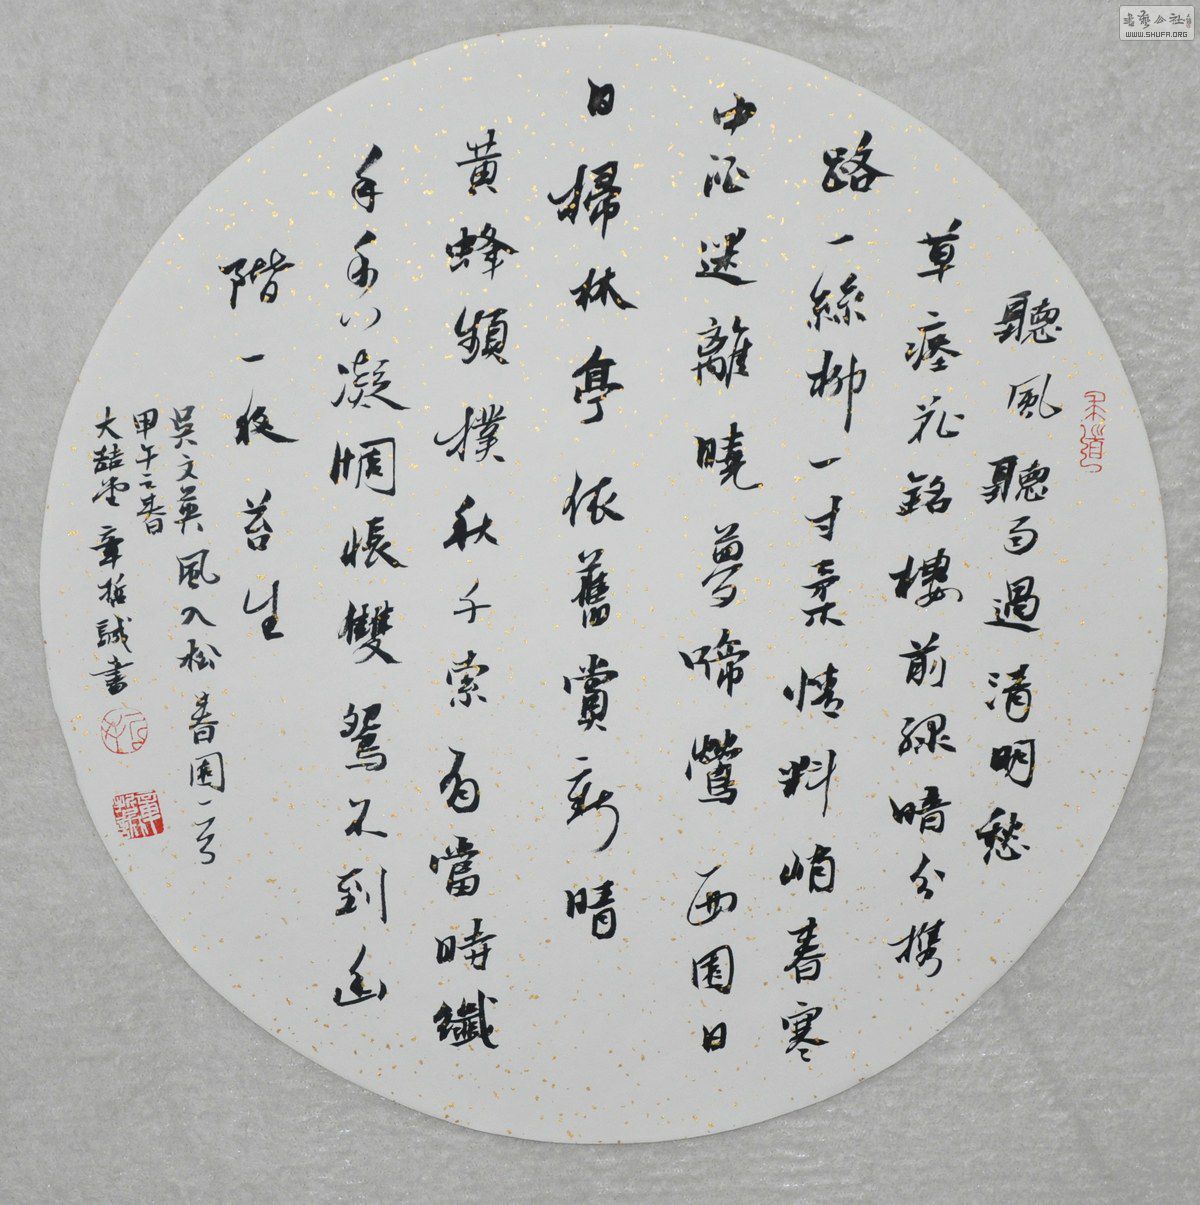 聽風聽雨過清明愁
草瘞花銘樓前綠暗分攜
路一絲柳一寸柔情料峭春寒
中酒迷離曉夢啼鶯西園日
日掃林亭依舊賞新晴
黃蜂頻撲秋千索有當時纖
手香凝惆悵雙鴛不到幽
階一夜苔生
吳文英風入松春園一首
甲午之春
大堂章哲誠書
書藝公社
WWW.SHUFA.ORG